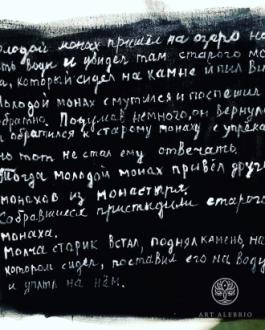 олодой монах пришёл на озеро
ть воды и увидел там старого мо
а, который сидел на камне и пил
Молодой монах смутился и поспешил
обратно. Подумав немного, он вернул
и обратился к старому монаху с упрёка
но тот не стал ему отвечать.
Тогда молодой монах привёл други
монахов из монастыря.
Собравшиеся пристыдили старого
монаха.
Молча старик встал, поднял камень, на
котором сидел, поставил его на воду
и уплыл на нём.
ART ALEBRIO